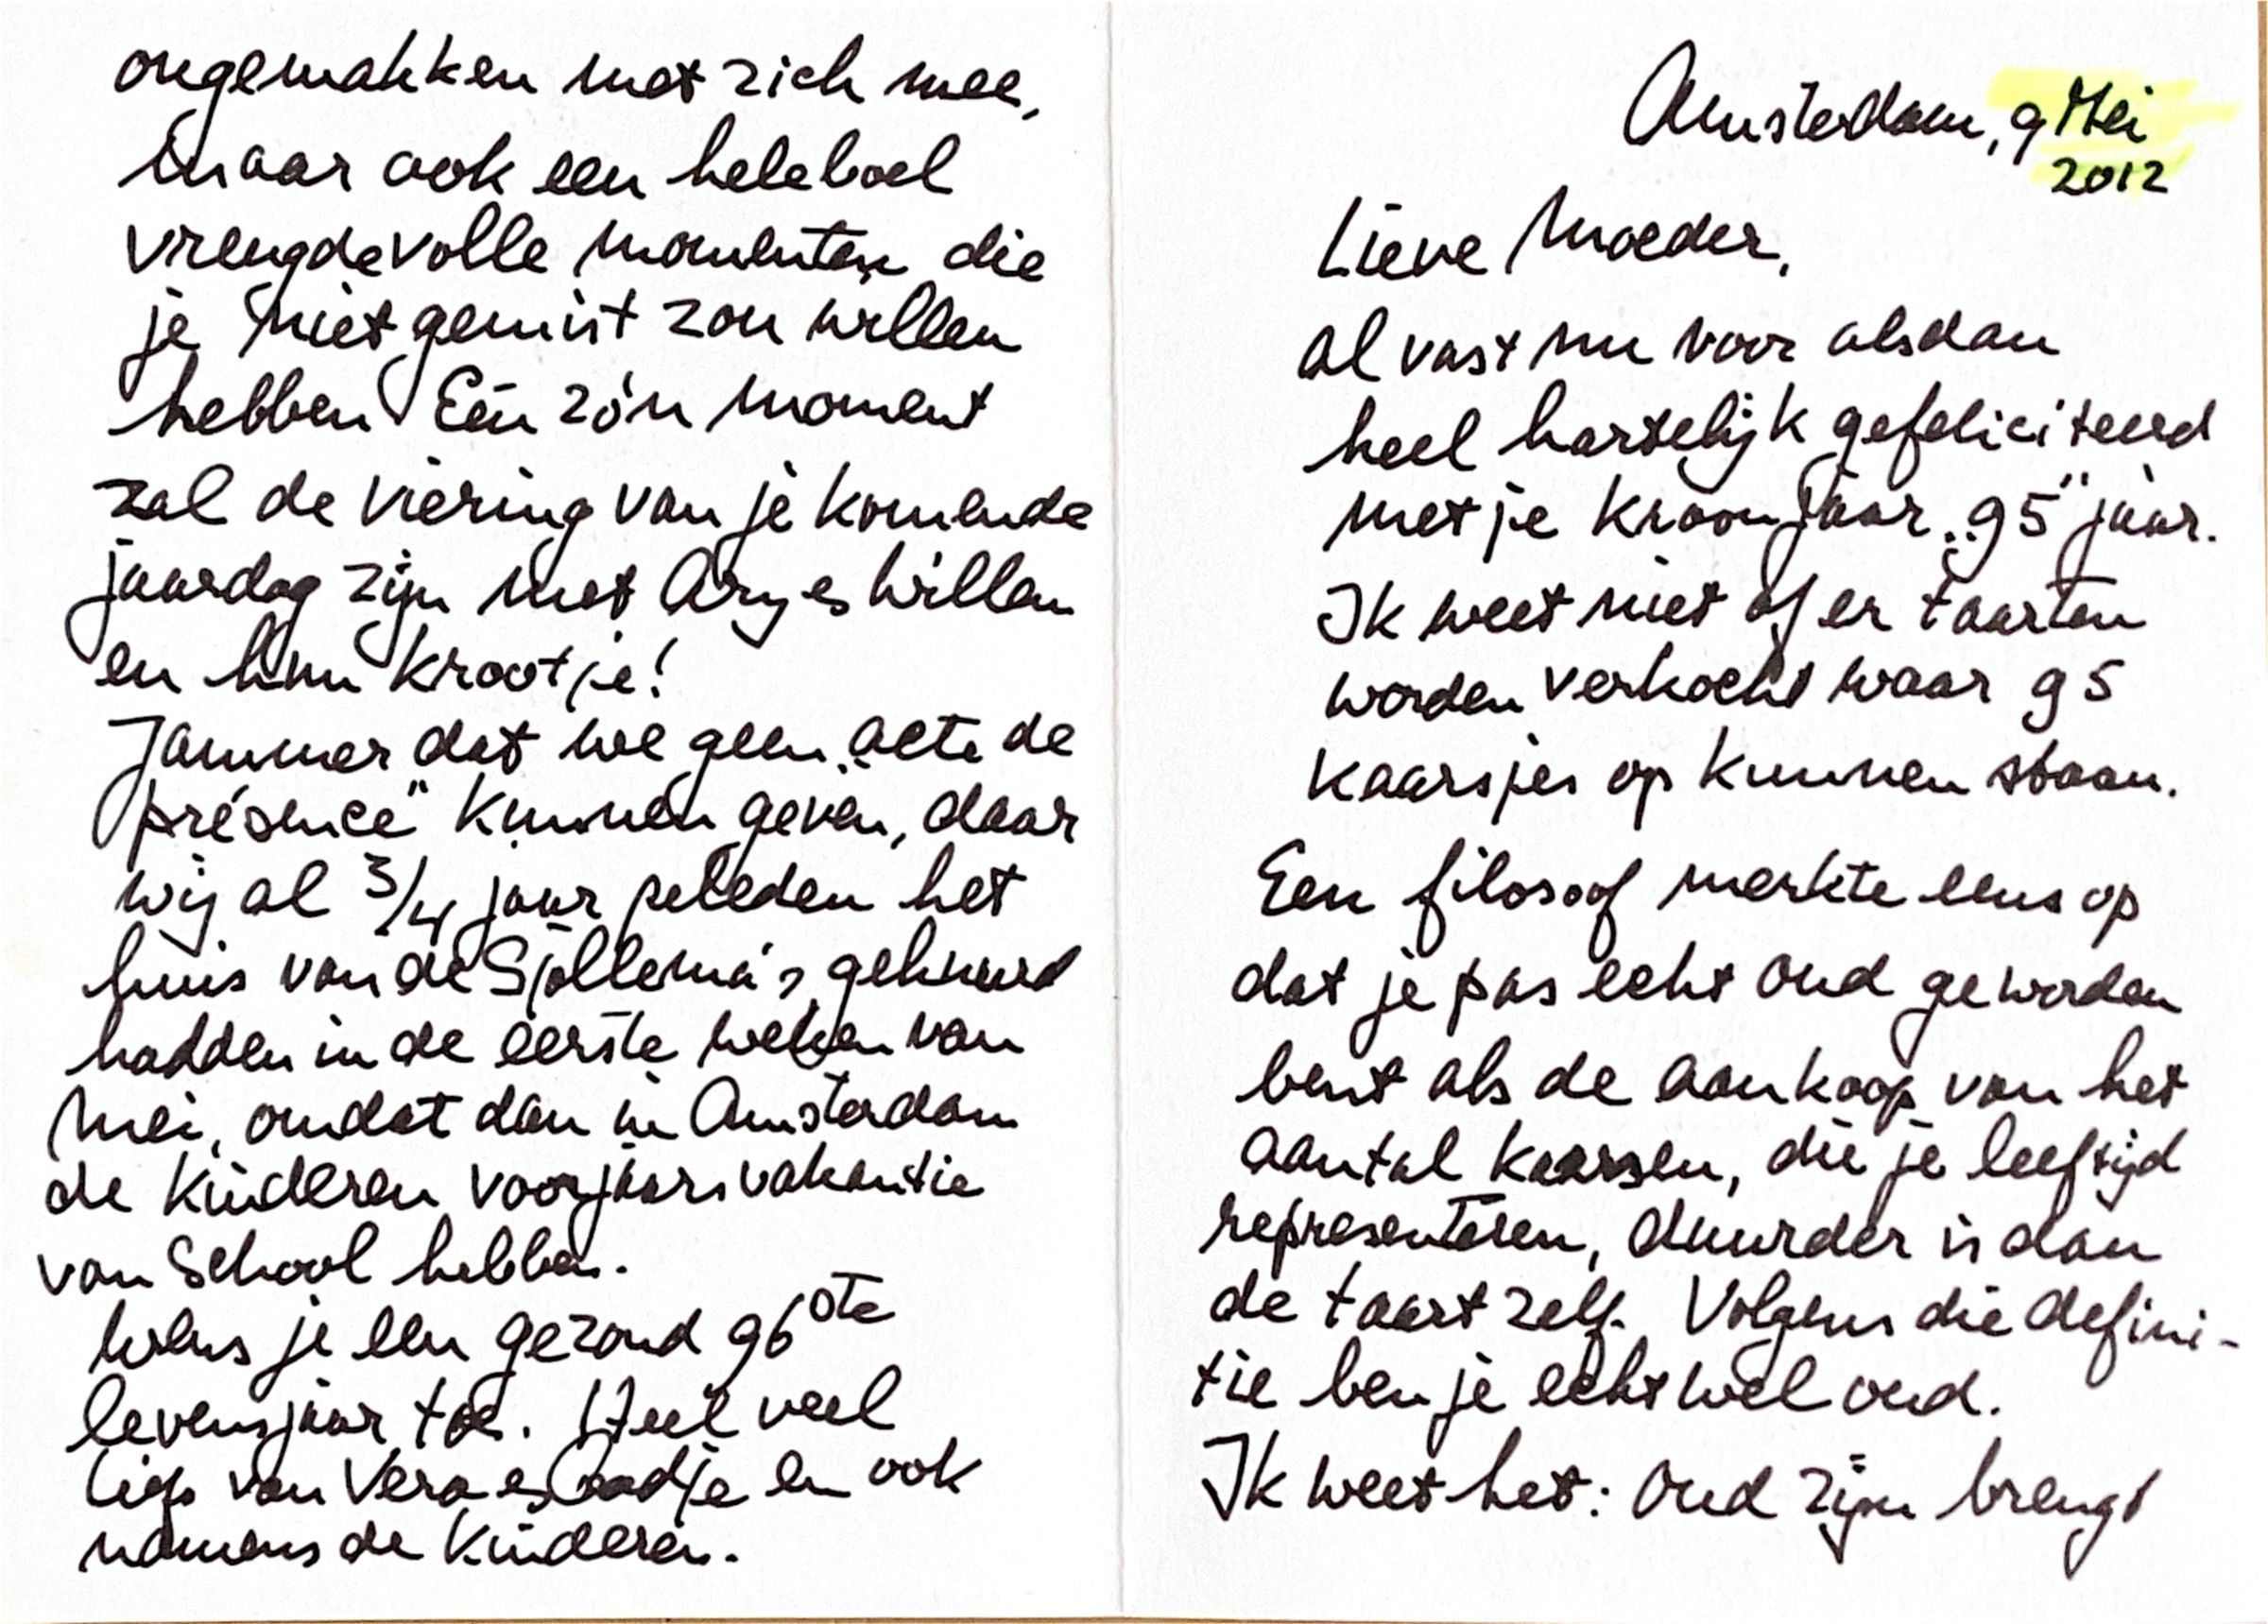 Amsterdam, 9 Mei
2012
Lieve Moeder,
al vast nu voor alsdan
heel hartelijk gefeliciteerd
met je kroonjaar „95" jaar.
Ik weet niet of er taarten
worden verkocht waar 95
kaarsjes op kunnen staan.
Een filosoof merkte eens op
dat je pas echt oud geworden
bent als de aankoop van het
aantal kaarsen, die je leeftijd
representeren, duurder is dan
de taart zelf. Volgens die defini-
tie ben je echt wel oud.
Ik weet het: oud zijn brengt
ongemakken met zich mee,
maar ook een heleboel
vreugdevolle momenten die
je niet gemist zou willen
hebben. Eén zo'n moment
zal de viering van je komende
jaardag zijn met Willem
en hun krootje!
Jammer dat we geen „acte de
présence" kunnen geven, daar
wij al 3/4 jaar geleden het
huis van de Sjollema's gehuurd
hadden in de eerste weken van
Mei, omdat dan in Amsterdam
de kinderen voorjaarsvakantie
van School hebben.
Wens je een gezond 96ste
levensjaar toe. Heel veel
liefs van Vera en en ook
namens de kinderen.